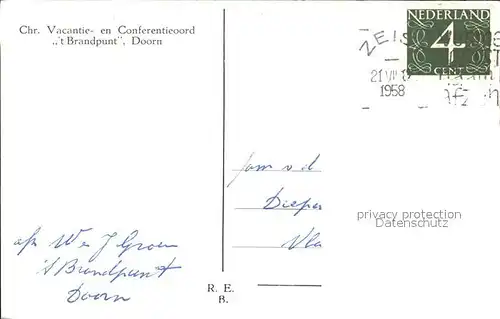 Chr. Vacantie- en Conferentieoord
„'t Brandpunt", Doorn
NEDERLAND
4
CENT
ZEIS
21 VII
1958
fam v d
Dieper
Vla
privacy protection
Datenschutz
afz W en J Groen
't Brandpunt
Doorn
R. E.
B.